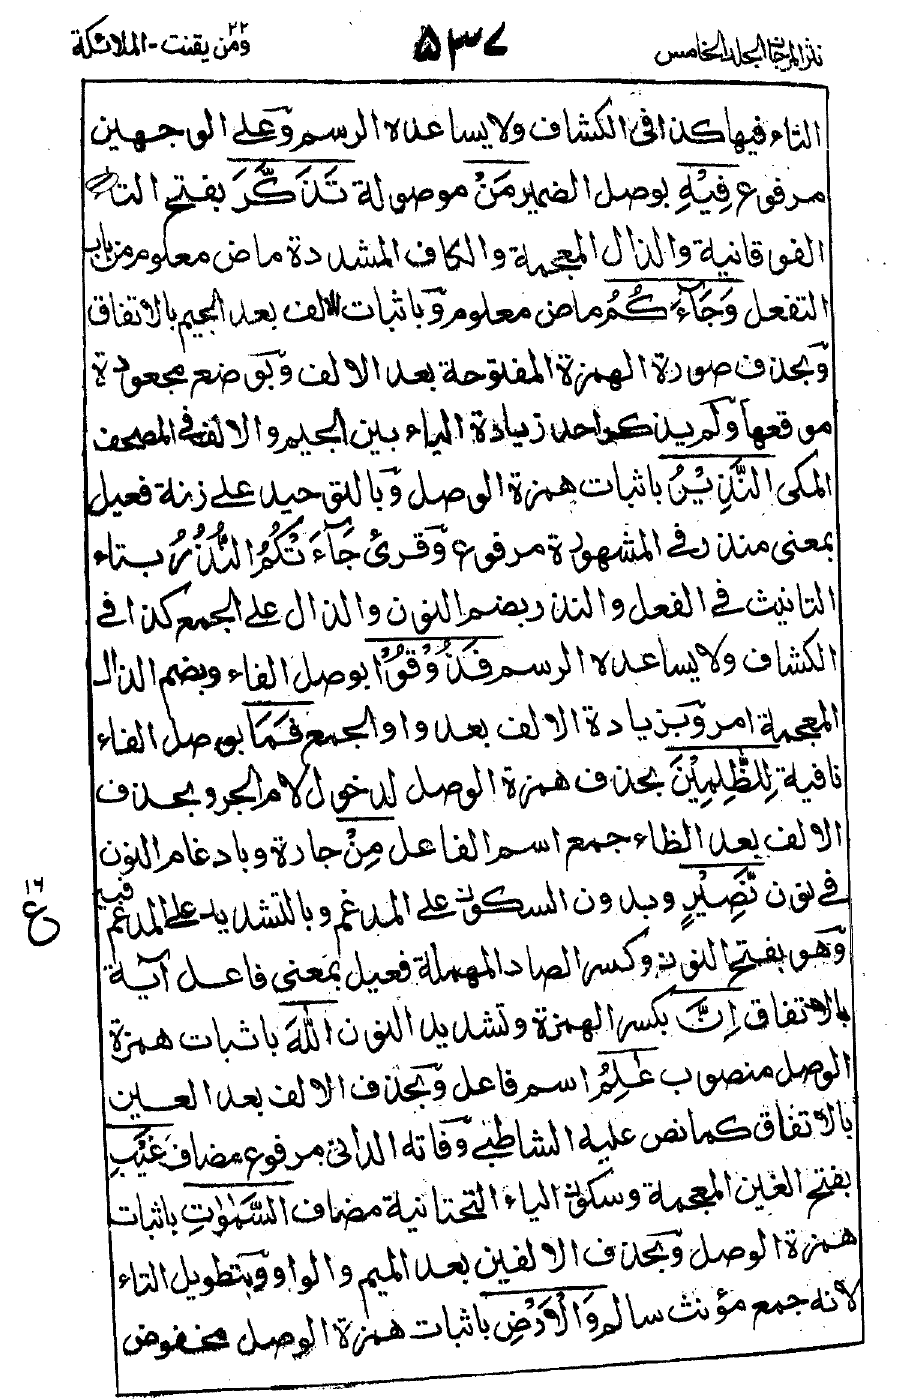 نثر المرجان المجلد الخامس
٥٣٧
ومن يقنت ٢٢ - الملائكة
التاء فيها كذا في الكشاف ولا يساعده الرسم وعلى الوجهين
مرفوع فِيْهِ بوصل الضمير مَنْ موصولة تَذَكَّرَ بفتح التاء
الفوقانية والذال المعجمة والكاف المشددة ماض معلوم من باب
التفعل وَجَآءَكُمُ ماض معلوم وباثبات الالف بعد الجيم بالاتفاق
وبحذف صورة الهمزة المفتوحة بعد الالف وبوضع مجعودة
موقعها ولم يذكر احد زيادة الياء بين الجيم والالف في المصحف
المكى النَّذِيْرُ باثبات همزة الوصل وبالتوحيد على زنة فعيل
بمعنى منذر في المشهورة مرفوع وقرئ جَآءَتْكُمُ النُّذُرُ بتاء
التانيث في الفعل والنذر بضم النون والذال على الجمع كذا في
الكشاف ولا يساعده الرسم فَذُوْقُوْا بوصل الفاء وبضم الذال
المعجمة امر وبزيادة الالف بعد واو الجمع فَمَا بوصل الفاء
نافية لِلظّٰلِمِيْنَ بحذف همزة الوصل لدخول لام الجر وبحذف
الالف بعد الظاء جمع اسم الفاعل مِنْ جارة وبادغام النون
في نون نَّصِيْرٍ وبدون السكون على المدغم وبالتشديد على المدغم فيه
وهو بفتح النون وكسر الصاد المهملة فعيل بمعنى فاعل آية
بالاتفاق اِنَّ بكسر الهمزة وتشديد النون اللّٰهَ باثبات همزة
الوصل منصوب عٰلِمُ اسم فاعل وبحذف الالف بعد العين
بالاتفاق كما نص عليه الشاطبي وفاته الداني مرفوع مضاف غَيْبِ
بفتح الغين المعجمة وسكون الياء التحتانية مضاف السَّمٰوٰتِ باثبات
همزة الوصل وبحذف الالفين بعد الميم والواو وبتطويل التاء
لانه جمع مؤنث سالم وَالْاَرْضِ باثبات همزة الوصل مخفوض
١٦
ع